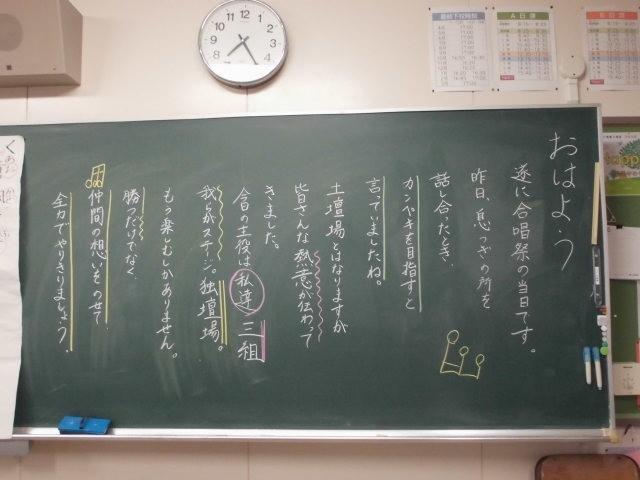 おはよう
遂に合唱祭の当日です。
昨日、息つぎの所を
話し合ったとき、
カンペキを目指すと
言っていましたね。
土壇場とはなりますが
皆さんな熱意が伝わって
きました。
今日の主役は私達三組
我らがステージ。独壇場。
もう楽しむしかありません。
勝つだけでなく、
仲間の想いをのせて
全力でやりきりましょう。
最終下校時刻
A日課
B日課